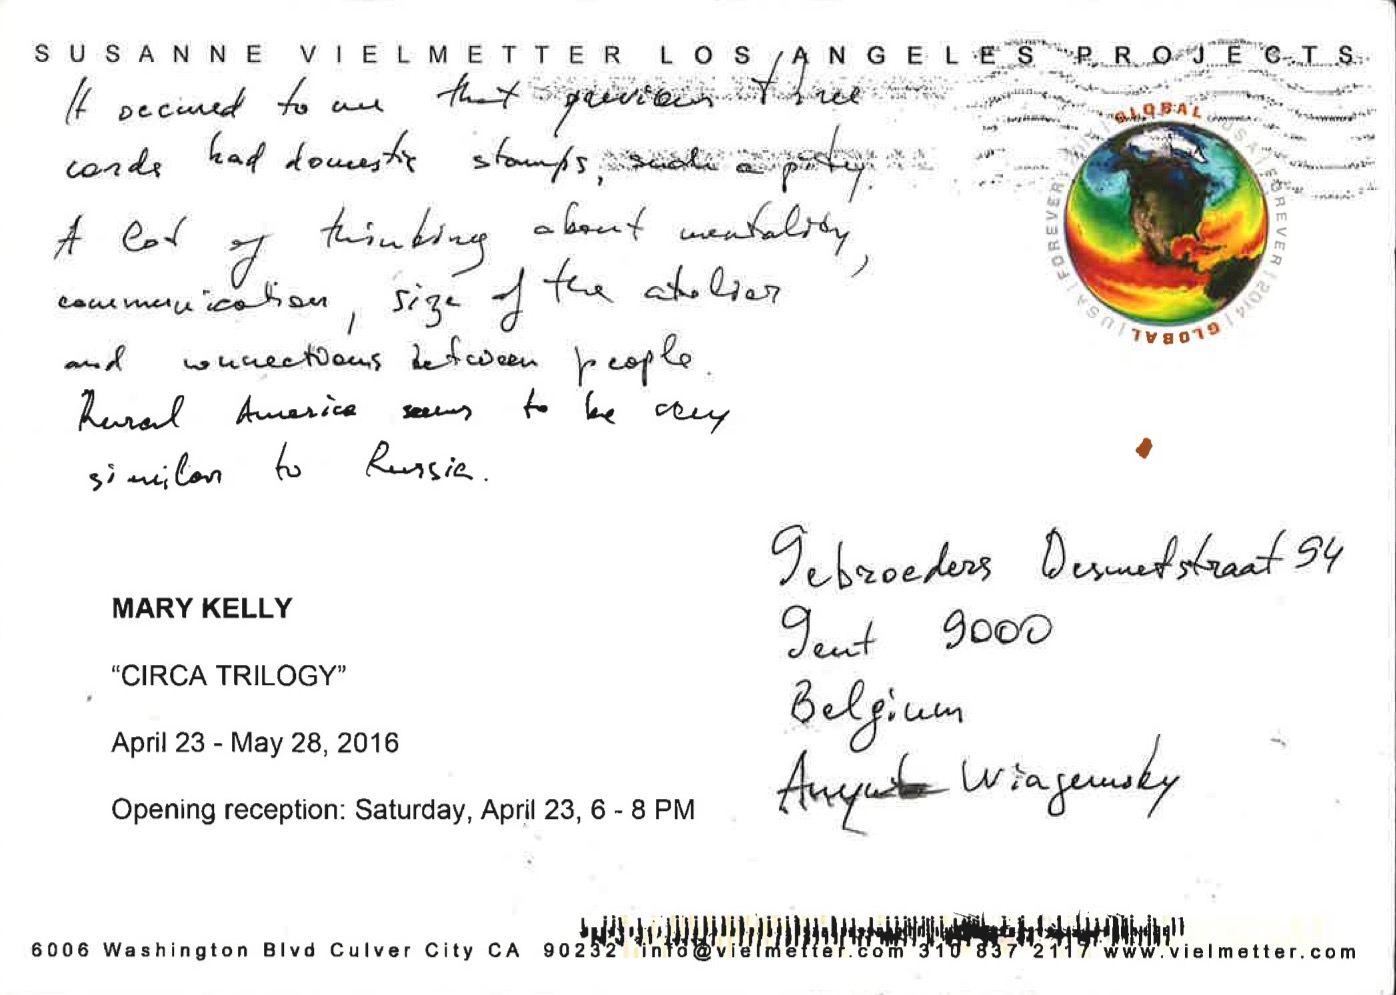 SUSANNE VIELMETTER LOS ANGELES PROJECTS
It occured to me that previous three
cards had domestic stamps, such a pity.
A lot of thinking about mentality,
communication, size of the atelier
and connections between people.
Rural America seems to be very
similar to Russia.
GLOBAL USA FOREVER 2014 GLOBAL USA FOREVER
Gebroeders Desmetstraat 94
Gent 9000
Belgium
Wiagemsky
MARY KELLY
“CIRCA TRILOGY”
April 23 - May 28, 2016
Opening reception: Saturday, April 23, 6 - 8 PM
6006 Washington Blvd Culver City CA 90232 info@vielmetter.com 310 837 2117 www.vielmetter.com